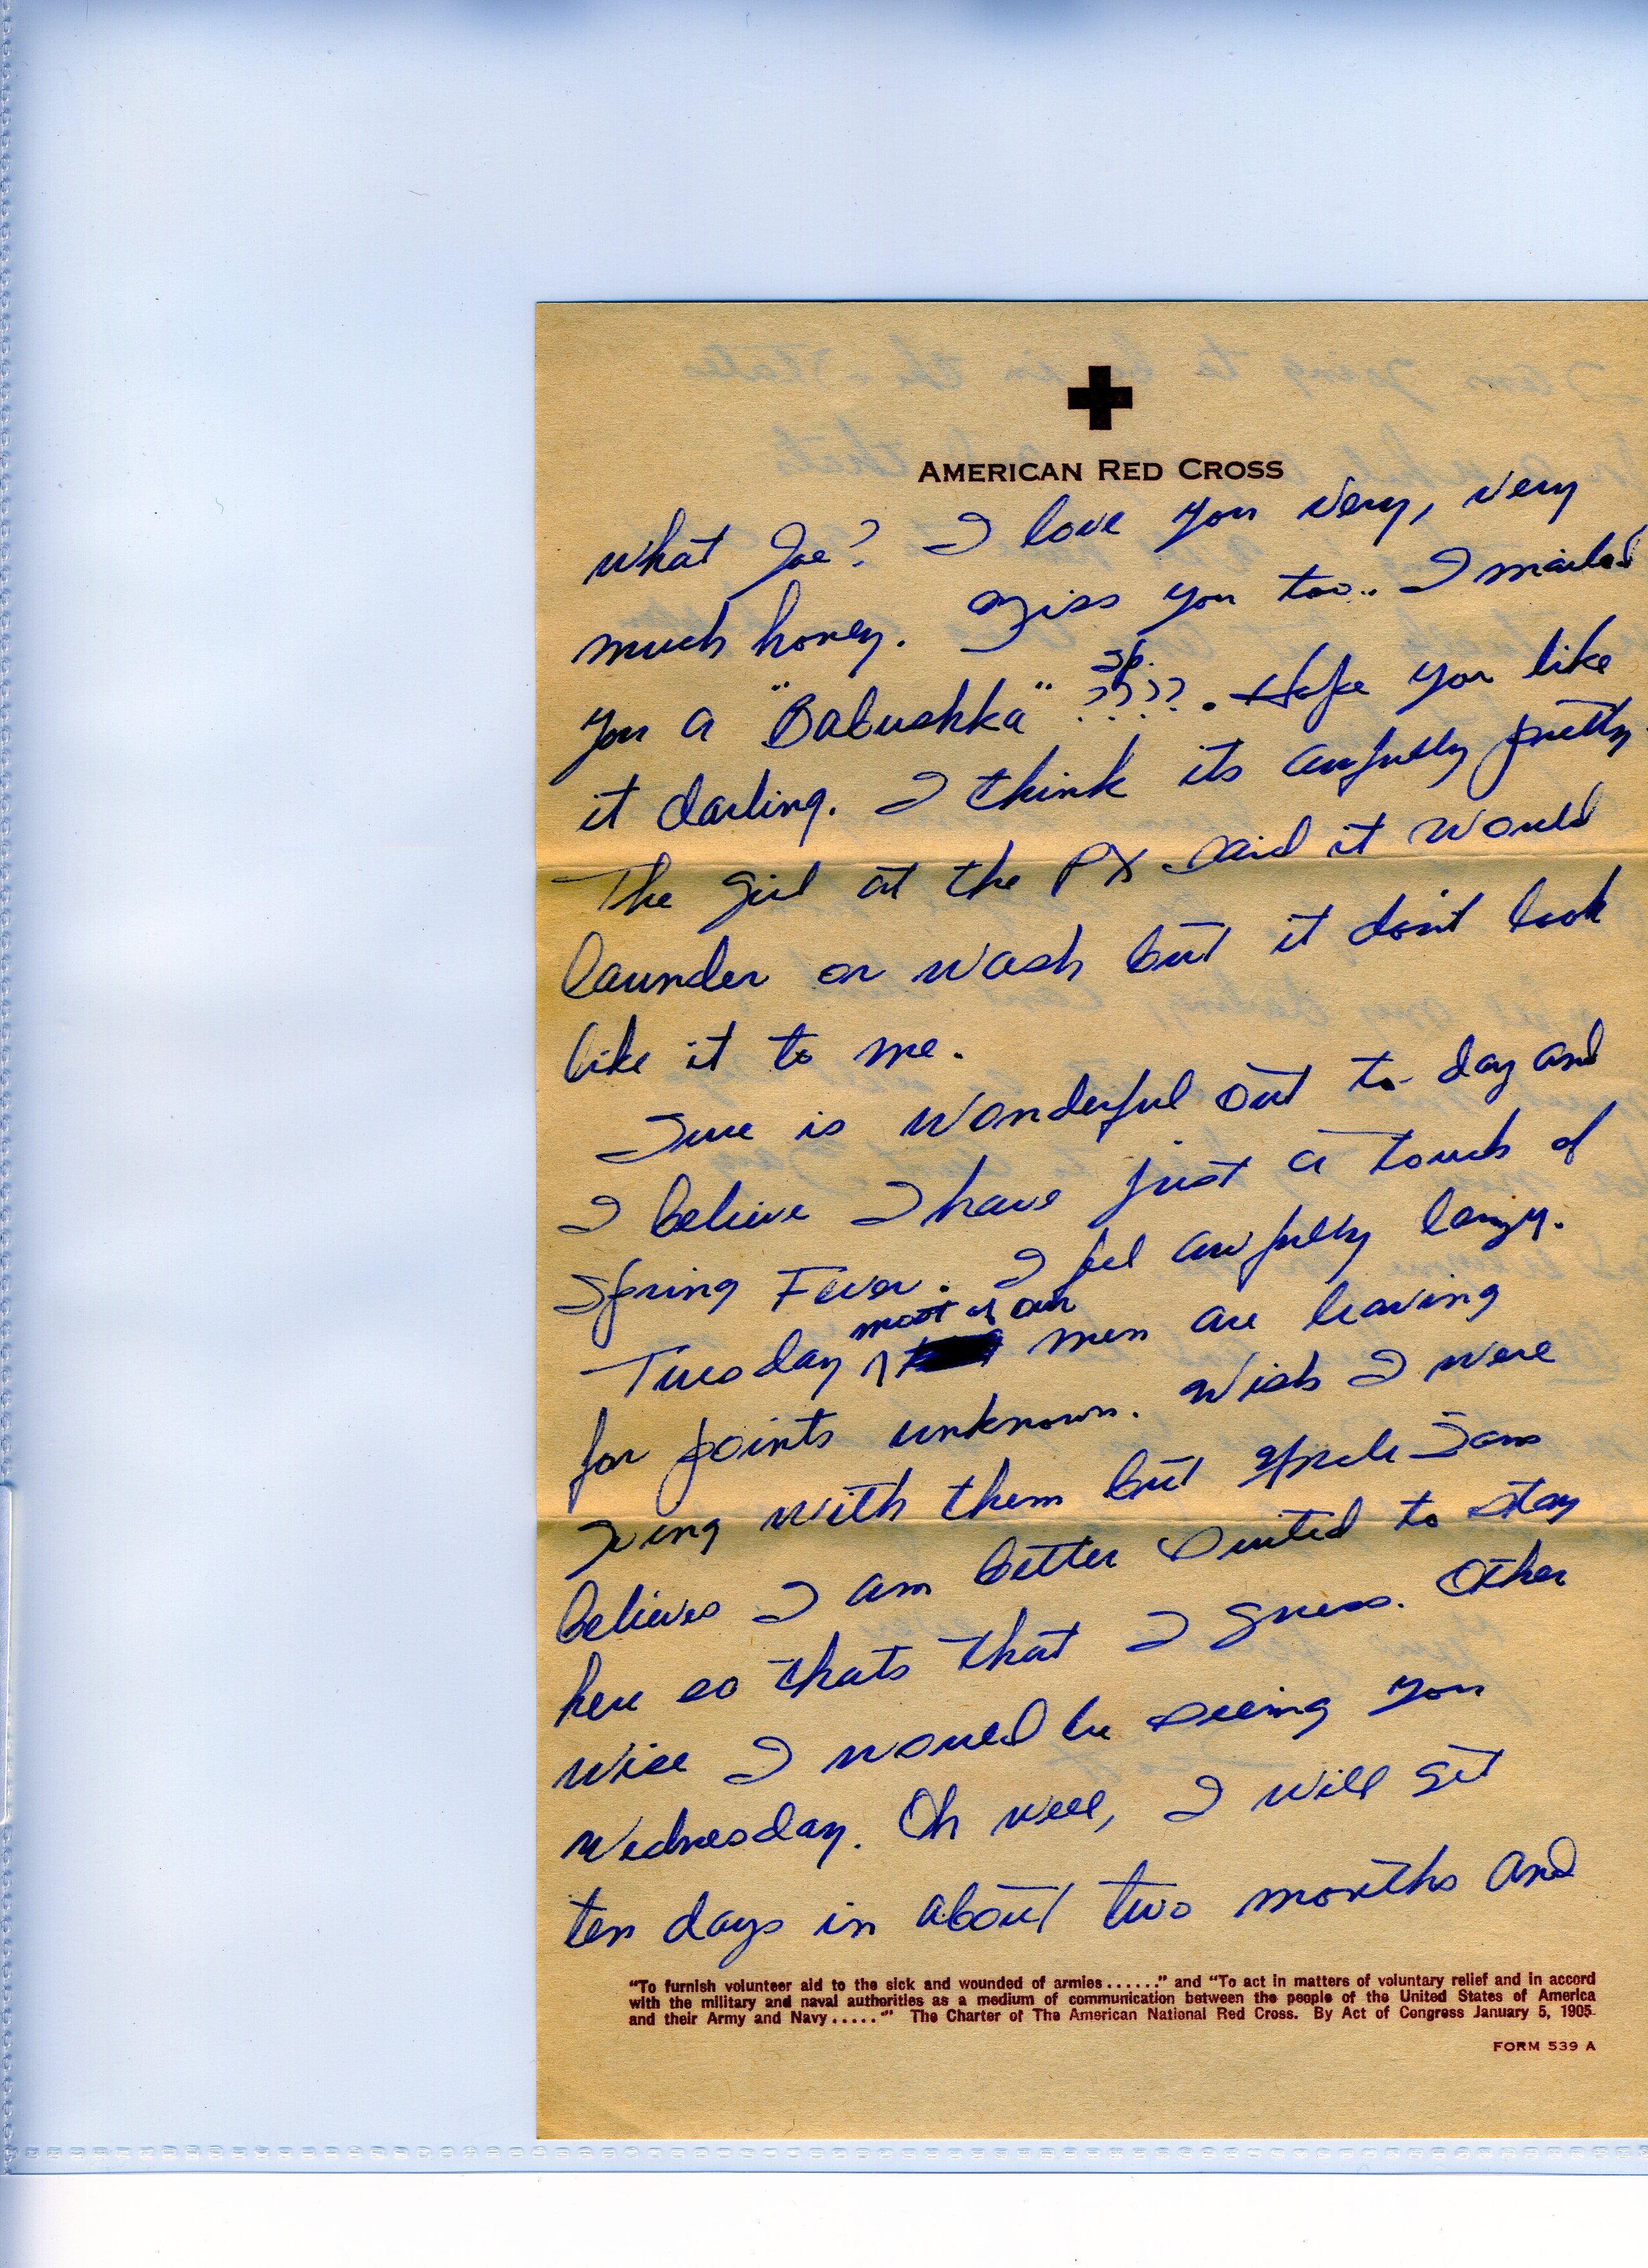 AMERICAN RED CROSS
what Joe? I love you very, very
much honey. Miss you too.. I mailed
you a "Babushka" sp. ????. Hope you like
it darling. I think its awfully pretty.
The girl at the PX said it would
launder or wash but it don't look
like it to me.
Sure is wonderful out to-day and
I believe I have just a touch of
Spring Fever. I feel awfully lazy.
Tuesday most of our men are leaving
for points unknown. Wish I were
going with them but Uncle Sam
believes I am better suited to stay
here so thats that I guess. Other
wise I would be seeing you
Wednesday. Oh well, I will get
ten days in about two months and
"To furnish volunteer aid to the sick and wounded of armies ......" and "To act in matters of voluntary relief and in accord
with the military and naval authorities as a medium of communication between the people of the United States of America
and their Army and Navy ....." The Charter of The American National Red Cross. By Act of Congress January 5, 1905.
FORM 539 A